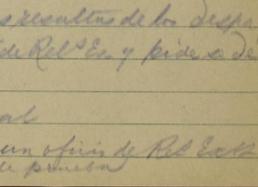 s resultas de los despa
de Rel.s Ex. y pide se de
al
un oficio de Rel Ext
de prueba